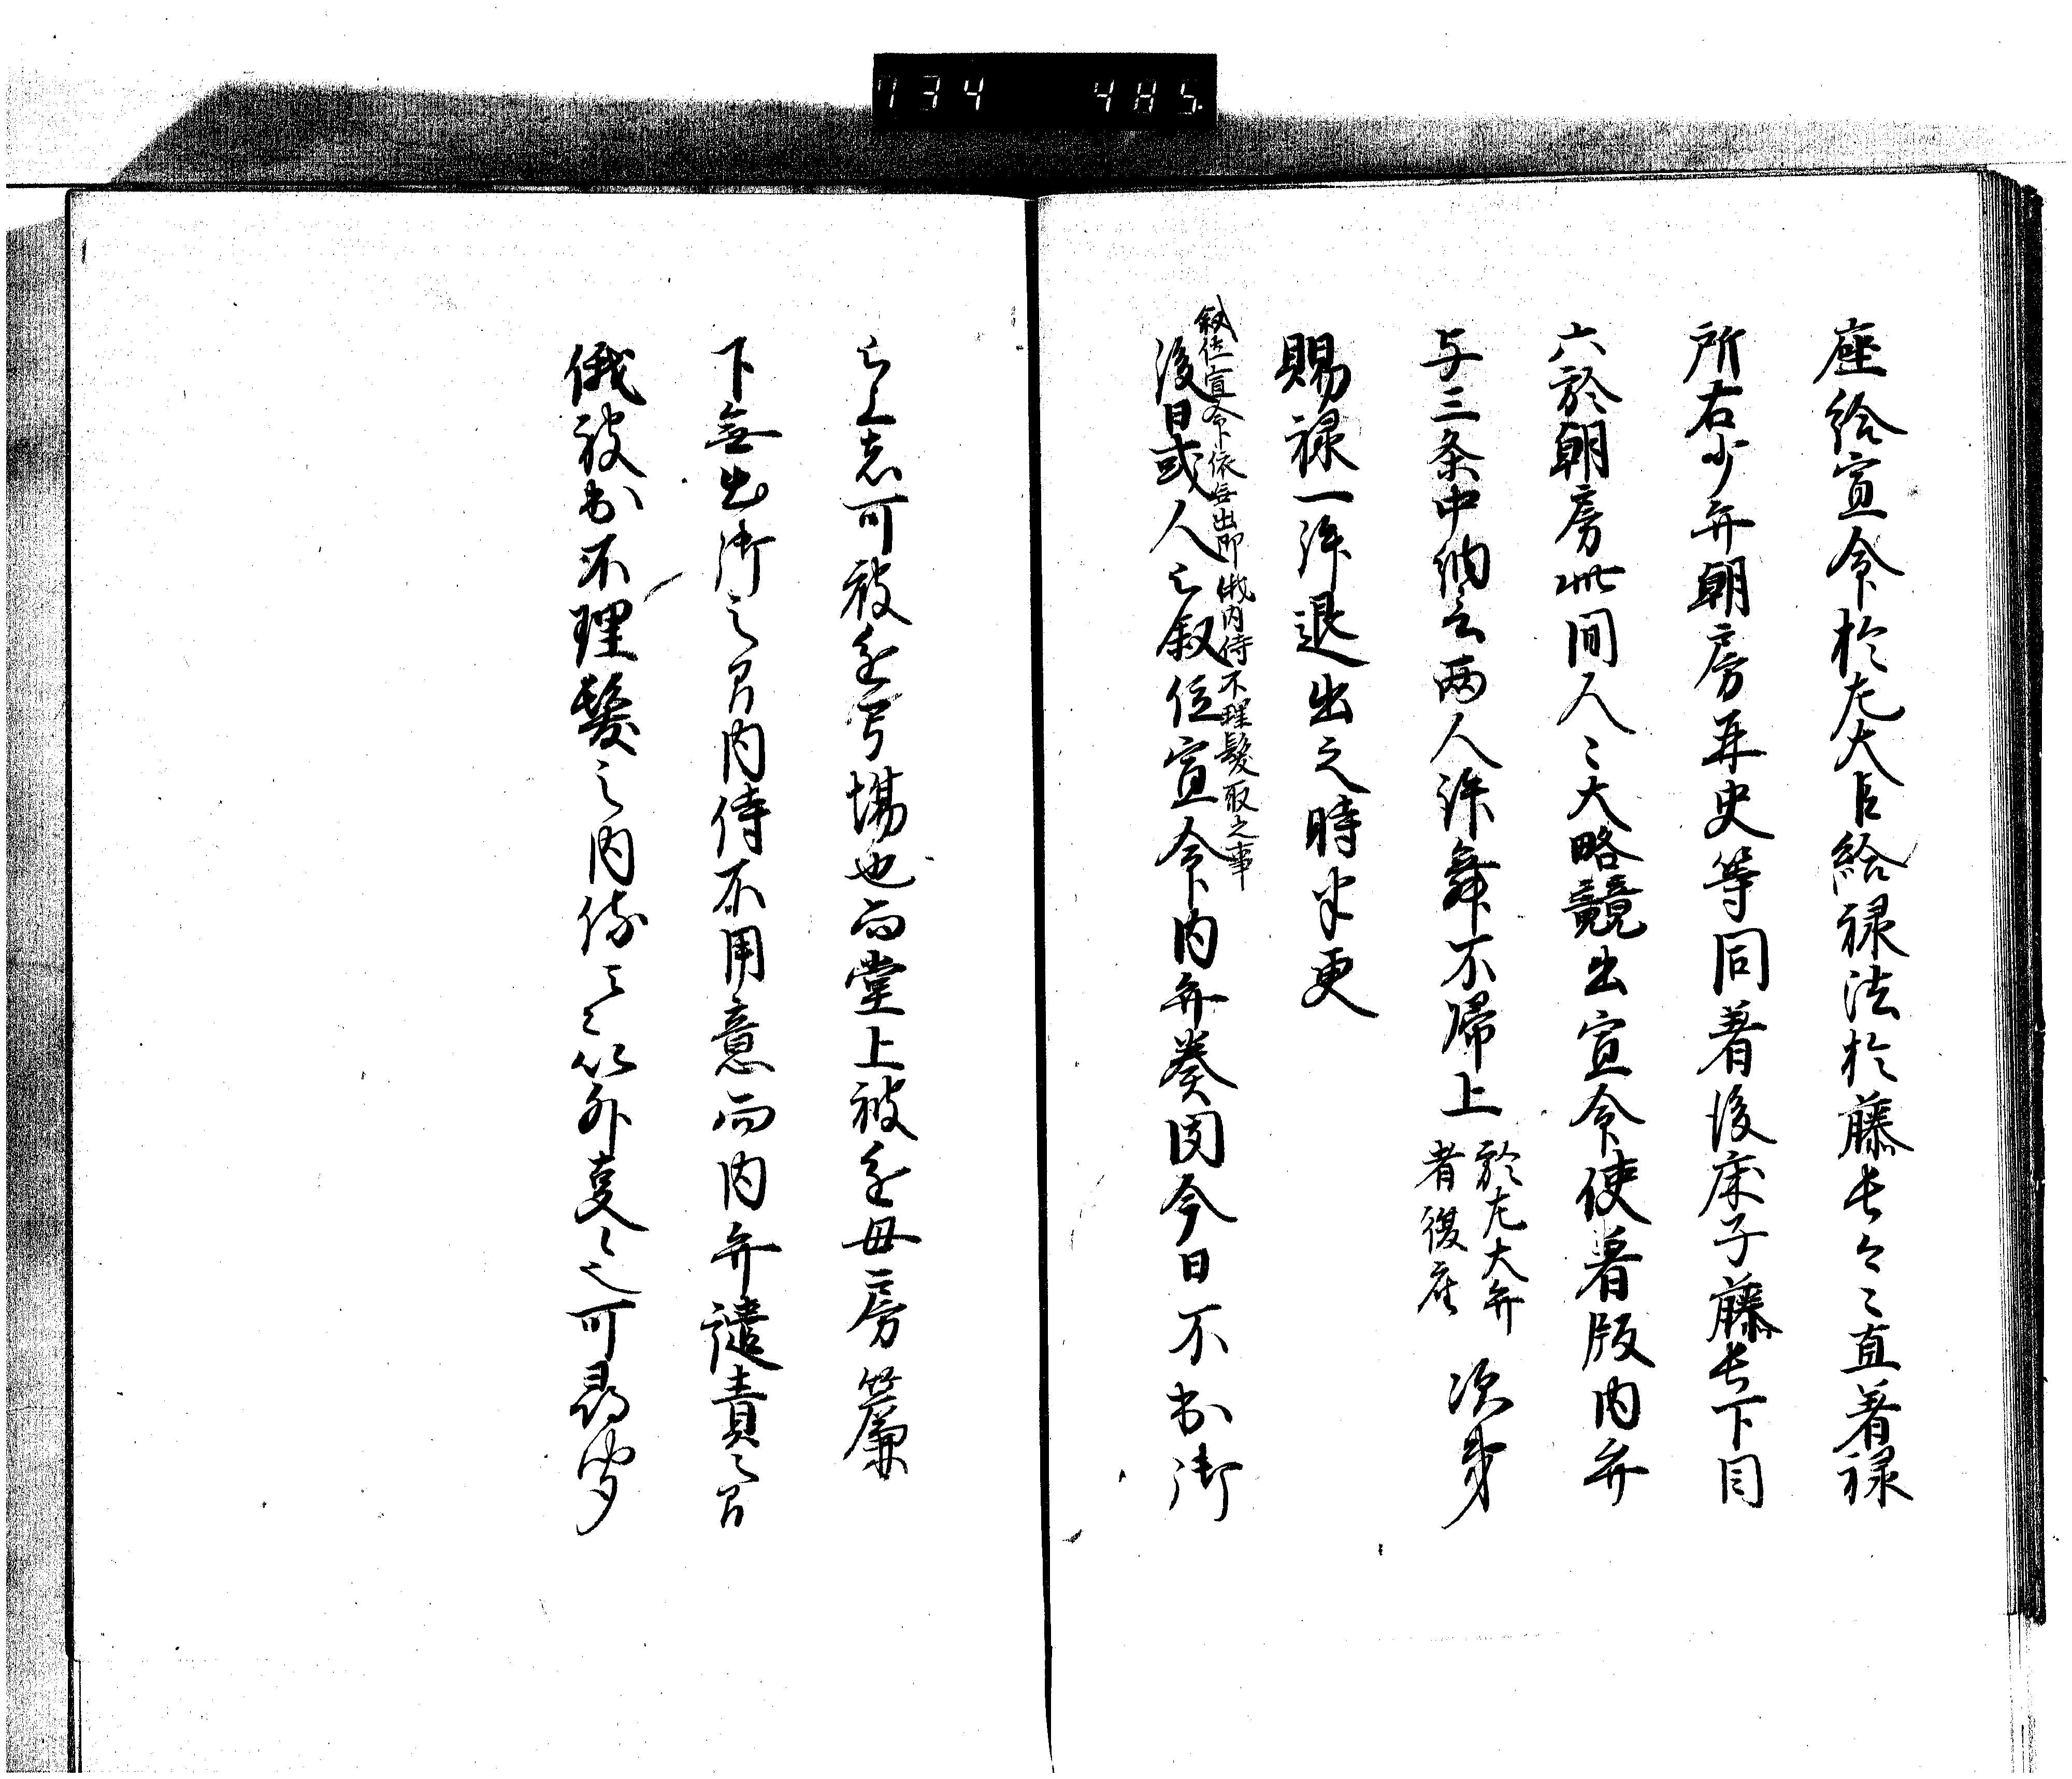 734 485
座給宣命於左大臣給禄法於藤長々々直着禄
所右少弁朝房弁史等同着後床子藤長下目
六於朝房此間人々大略競出宣命使着版内弁
与三条中納言両人許舞不帰上 於左大弁者復座 次第
賜禄一許退出之時半更
叙位宣命依無出御俄内侍不理髪取之事
後日或人云叙位宣命内弁奏国今日不出御
云上者可被進弓場也而堂上被進母房簾
下無出御之間内侍不用意而内弁譴責之間
俄被出不理髪之内侍云々以外事也可尋